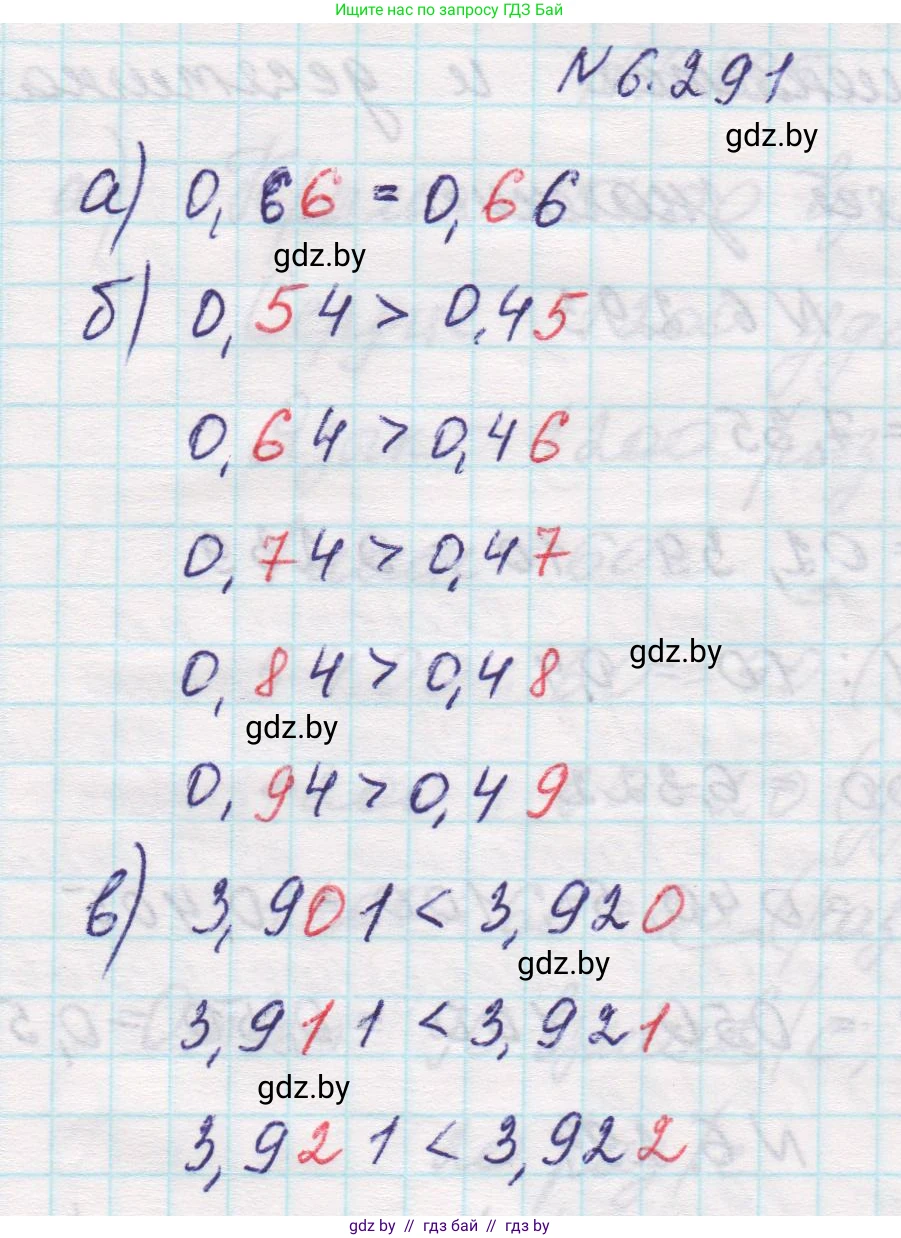 Ищите нас по запросу ГДЗ Бай
N 6.291
gdz.by
а) 0,66 = 0,66
gdz.by
б) 0,54 > 0,45
0,64 > 0,46
0,74 > 0,47
gdz.by
0,84 > 0,48
gdz.by
0,94 > 0,49
в) 3,901 < 3,920
gdz.by
3,911 < 3,921
gdz.by
3,921 < 3,922
gdz.by // гдз бай // гдз by